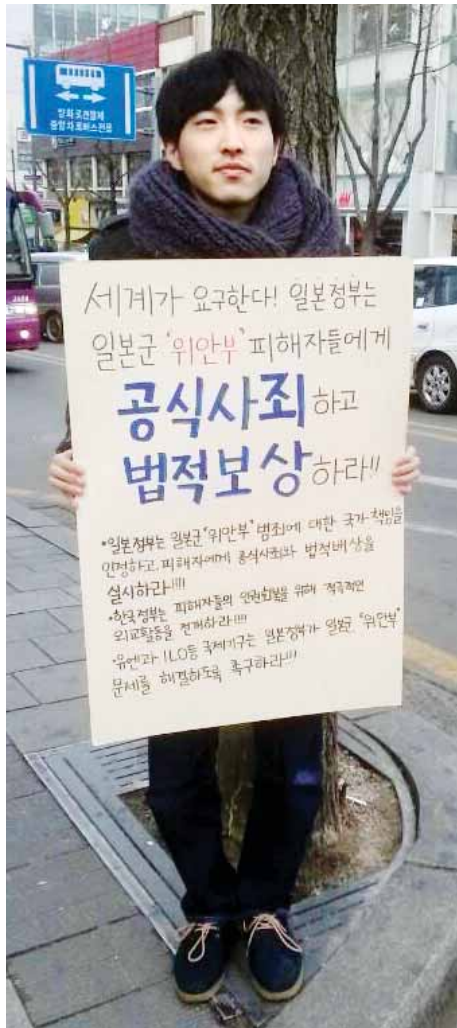 세계가 요구한다! 일본정부는
일본군 '위안부' 피해자들에게
공식사죄하고
법적보상하라!!
•일본정부는 일본군 '위안부' 범죄에 대한 국가 책임을
인정하고, 피해자에게 공식사죄와 법적배상을
실시하라!!!!
•한국정부는 피해자들의 인권회복을 위해 적극적인
외교활동을 전개하라!!!!
•유엔과 ILO등 국제기구는 일본정부가 일본군 '위안부'
문제를 해결하도록 촉구하라!!!